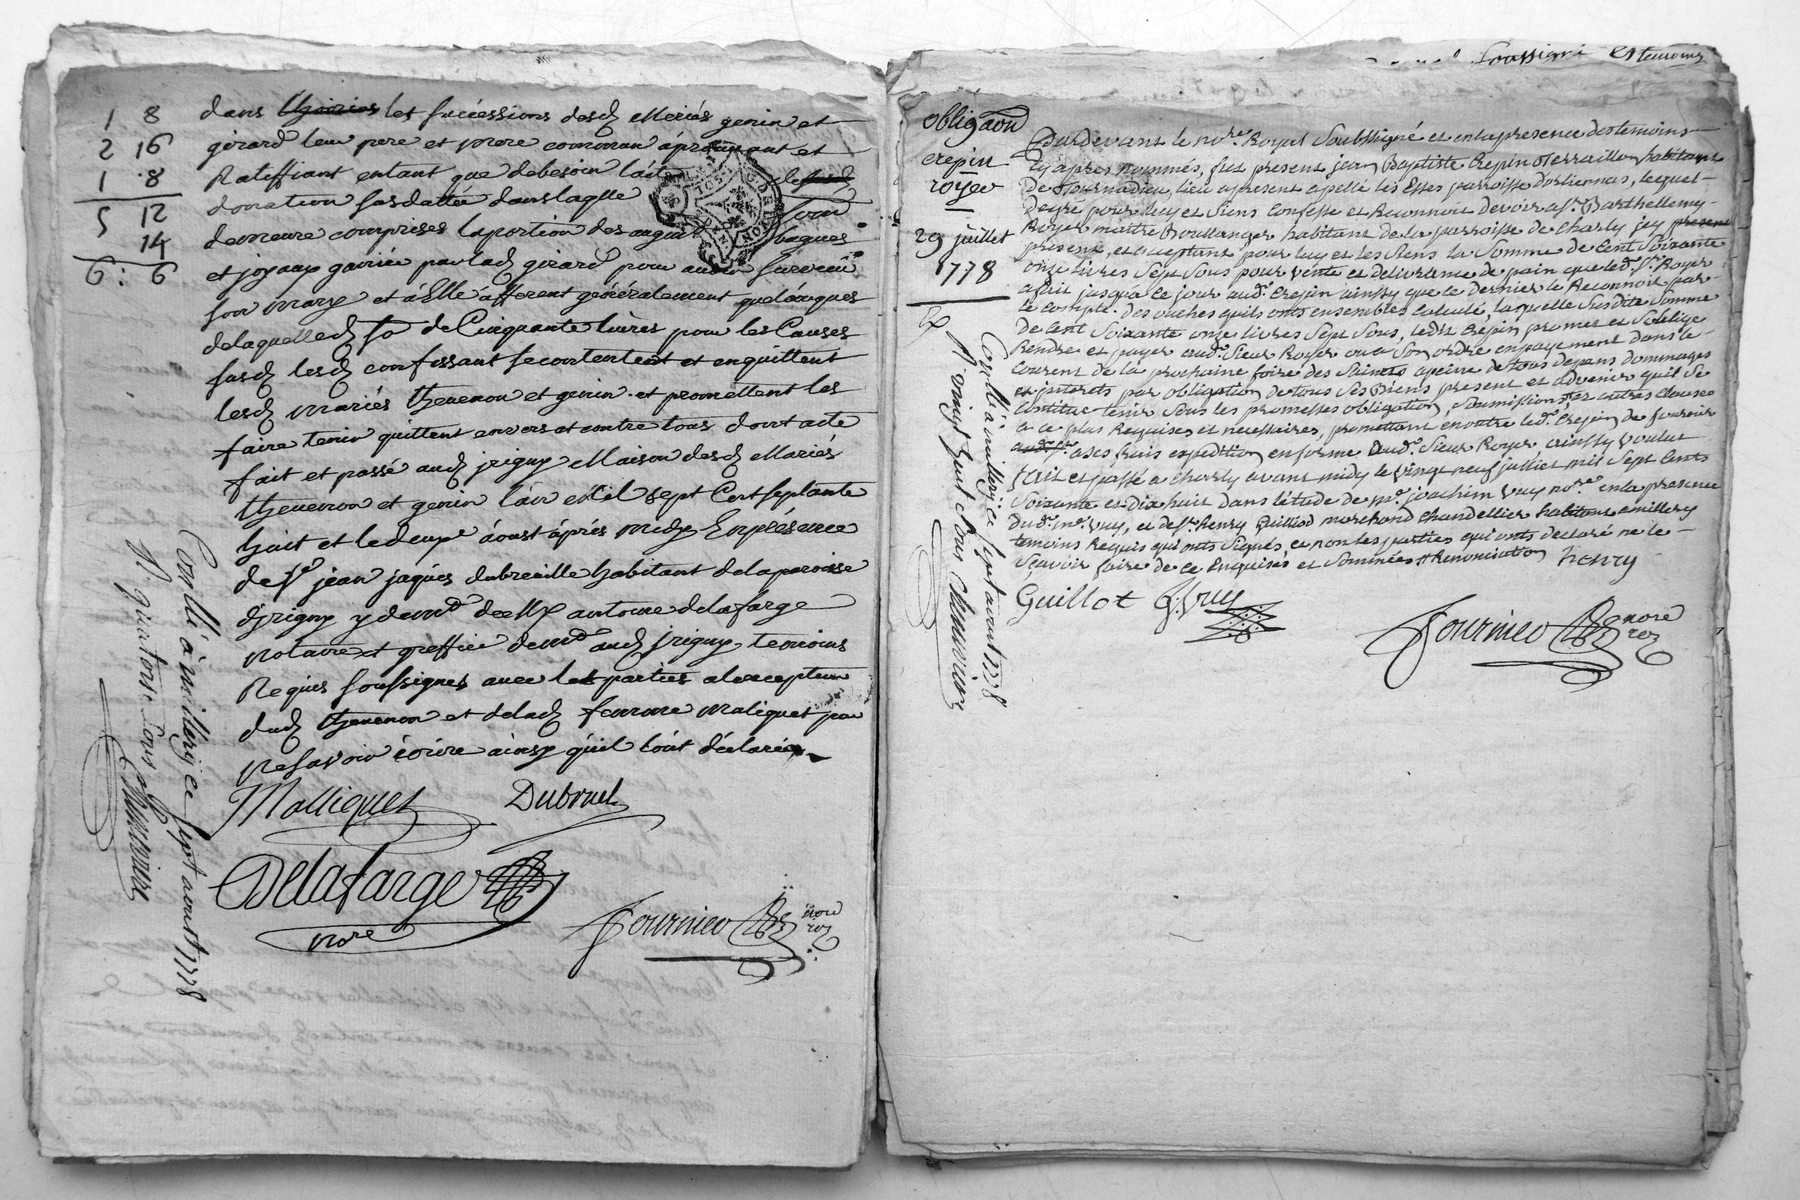 1 8
2 16
1 8
5 12
14
6 : 6
dans les successions desd mariés genin et
girard leur pere et mere comman áprouvant et
Ratiffiant entant que debesoin
donation susdattée dans laqlle
demeure comprises laportion des augm bagues
et joyaux gaignée par lad girard pour
son mary et á Elle áfferent généralement quelconques
delaquelle d. so de Cinquante livres pour les Causes
susd lesd confessant se contentent et enquittent
lesd mariés thevenon et genin et promettent les
faire tenir quittent envers et contre tous dont acte
fait et passé aud jrigny Maison desd Mariés
thevenon et genin l'an mil sept Cent septante
huit et le deuxe áoust áprés midy En présence
de sr jean jaques dubreuille habitant de la paroisse
d'jrigny y demt de Mr antoine delafarge
notaire et greffier demt aud jrigny, temoins
Requis soussignés avec les parties alexception
dud thevenon et delad femme maliquet pour
ne savoir écrire ainsy quil lont déclaré
Malliquet Dubruel
Delafarge
nore
fournier nore roy
Conllé á millery ce sept aoust 1778
R. quatorze sous
obligaon
crepin
royer
29 juillet
1778
Soussigné et temoins
Pardevant le nore. Royal Soubssigné et en la presence des temoins
Cy apres nommés, fut present jean Baptiste Crepin terraillon habitant
de tournadieu, lieu apresent apellé les Esses parroisse d'orliennas, lequel
degré pour luy et siens Confesse et Reconnoit devoir a sr. Barthellemy
Royer maitre Boullanger habitant de la parroisse de Charly jcy present
present, et acceptant pour luy et les siens la somme de Cent soixante
onze livres sept sous pour vente et delivrance de pain que led. sr. Royer
a fait jusqua ce jour aud. Crepin ainsy que le dernier le Reconnoit par
le compte des ouches quils onts ensembles calculé, laquelle susdite somme
de Cent soixante onze livres sept sous, ledit Crepin promet et s'oblige
Rendre et payer aud. sieur Royer ou a son ordre en payement dans le
courent de la prochaine foire des saints apeine de tous depens dommages
et jnterets par obligation de tous ses Biens present et advenir quil se
Constitue tenir sous les promesses obligation, soumissions et autres clauses
a ce plus Requises et necessaires, promettant en outre led. Crepin de fournir
a ses frais expedition en forme aud. sieur Royer ainssy voulut
fait et passé a Charly avant midy le vingt neuf juillet mil sept Cents
soixante et dix huit dans l'etude de me. joachim vuy nore. en la presence
dud. me. vuy, et de sr. henry Guilliot marchand chandellier habitant a millery
temoins Requis qui onts signés, et non les parties qui onts declaré ne le
sçavoir faire de ce Enquises et sommées renonciation henry
Guillot J. vuy
fournier nore roy
Conllé á millery ce sept aoust 1778
R. vingt huit sous